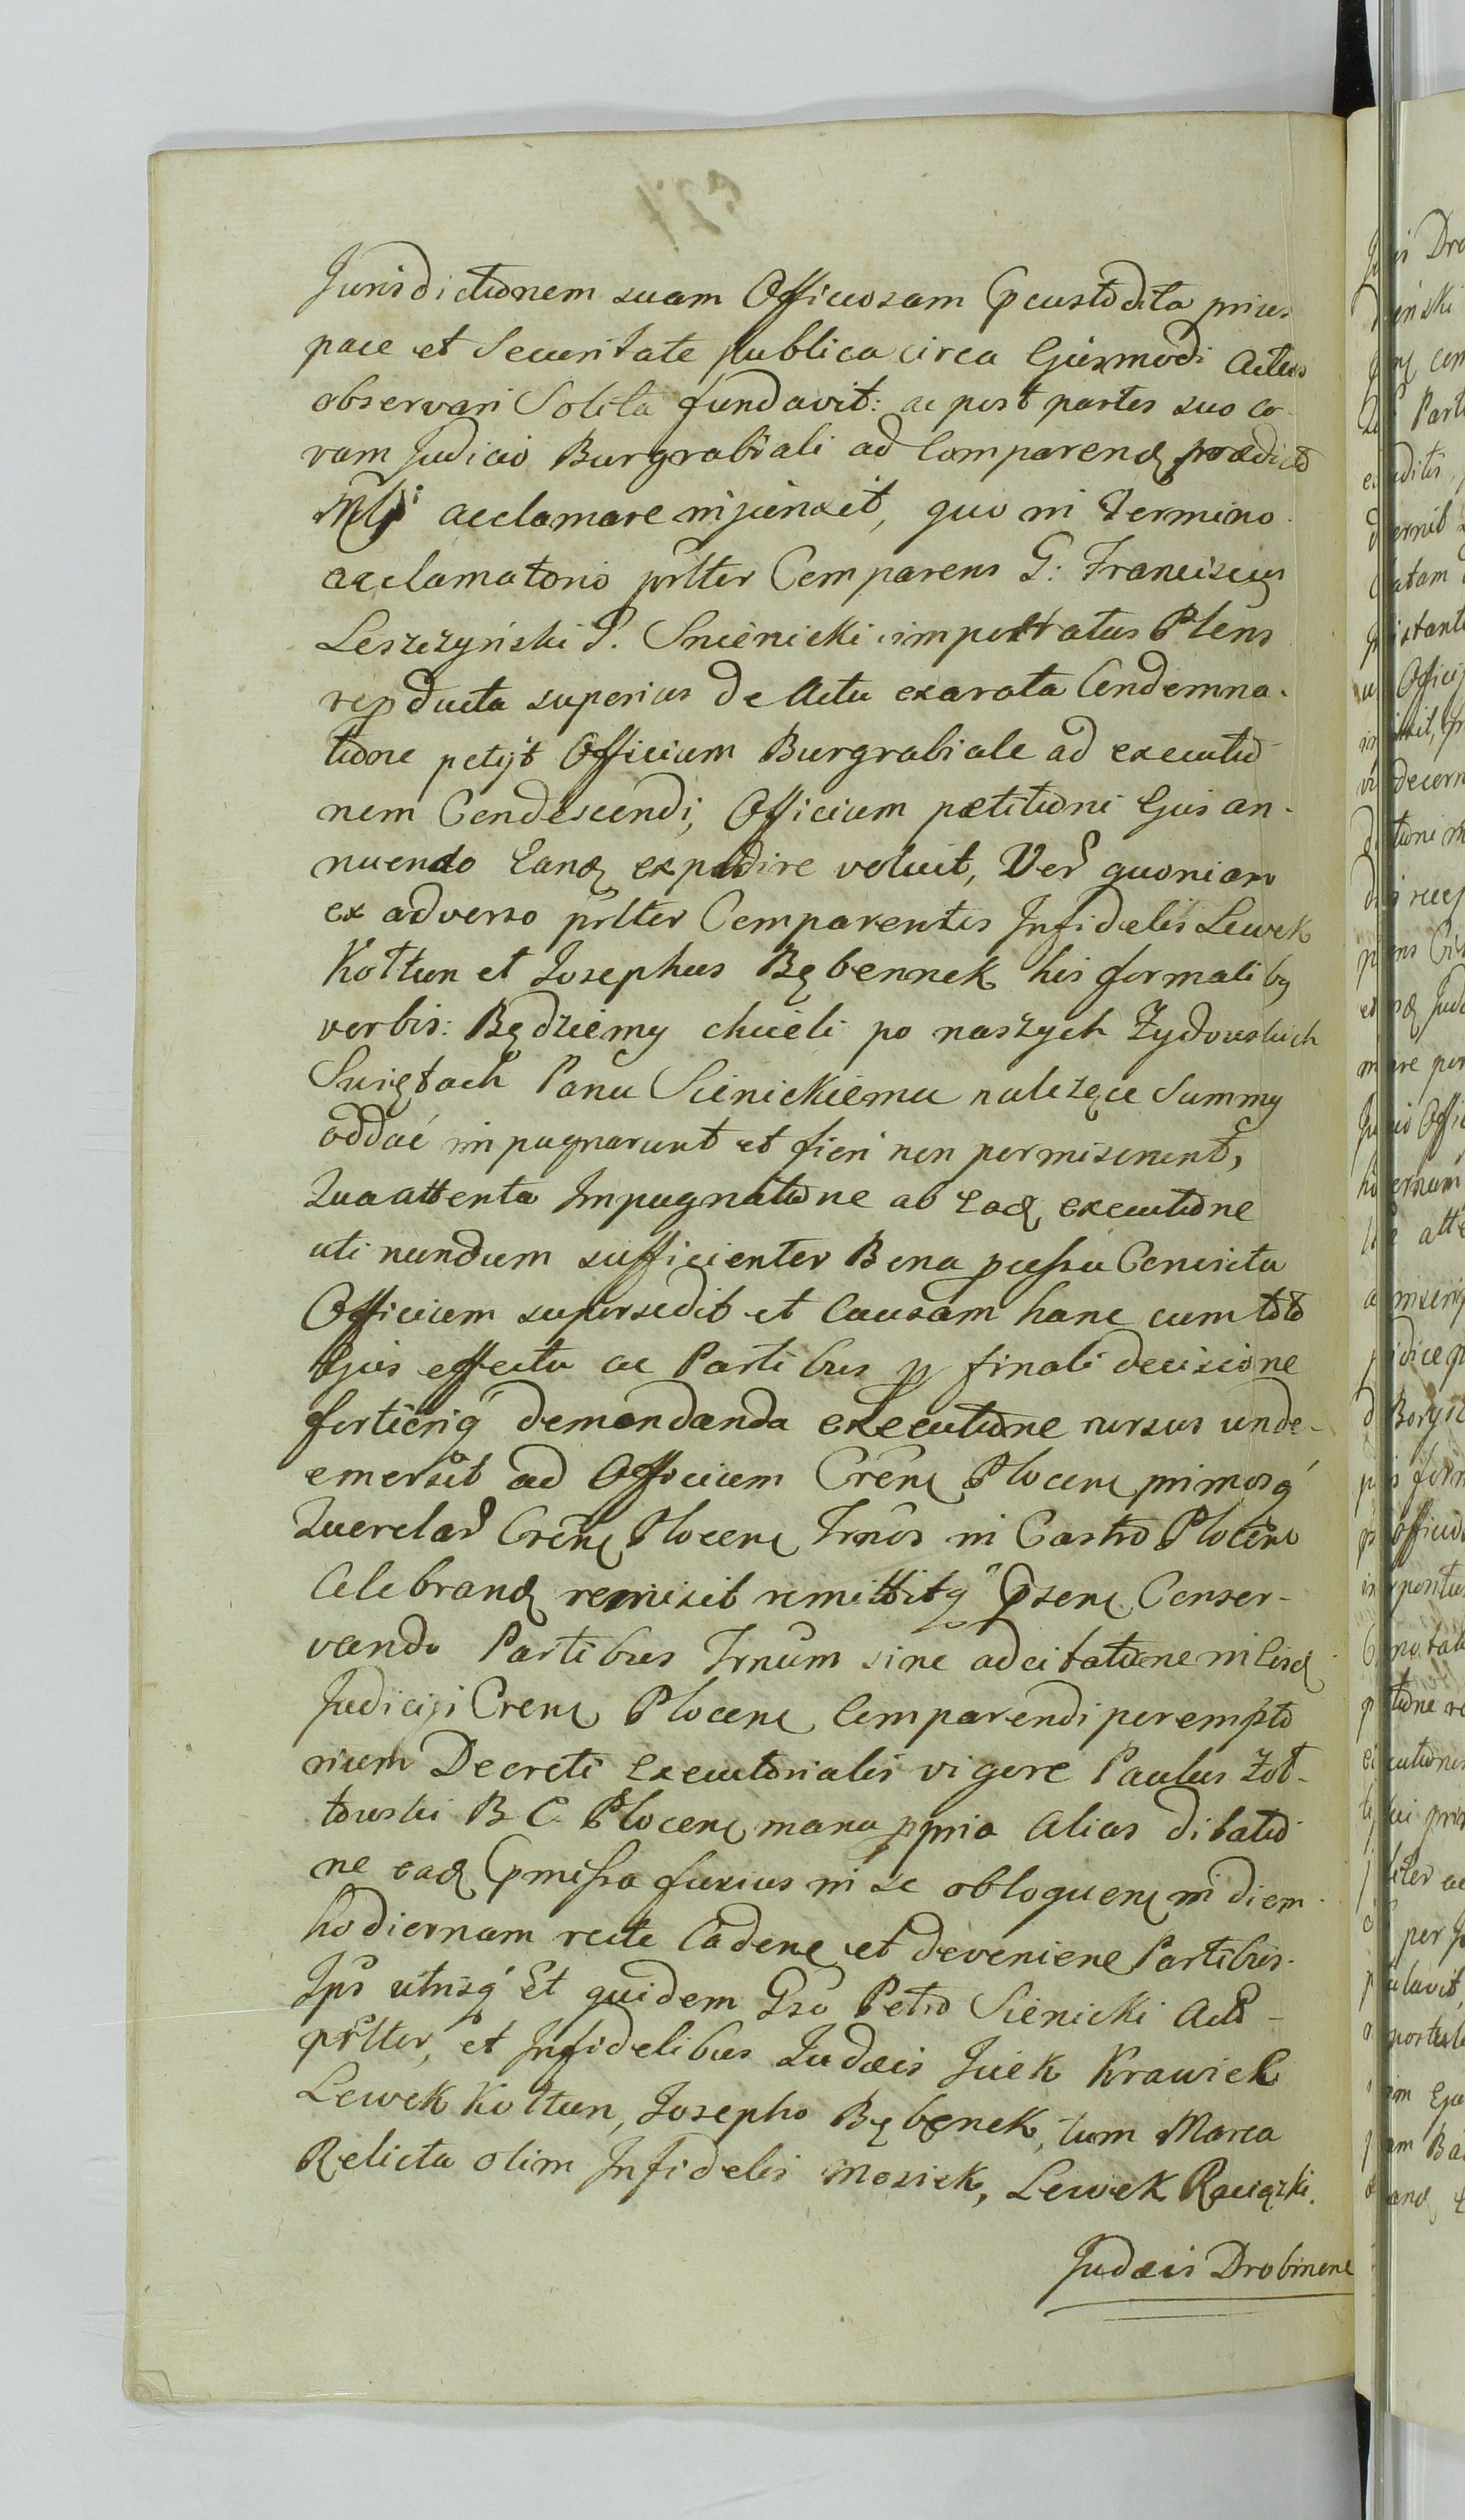 Jurisdictionem suam Officiosam Pcustodita prius
pace et Securitate publica circa Ejusmodi Actus
observari Solita fundavit: ac post partes suo co-
ram Judicio Burgrabiali ad Comparend praedicto
Mlji acclamare injunxit, quo in Termino
acclamatorio prlter Comparens G: Franciscus
Leszczyński P. Snienicki impetratus Plens
repducta superius de Actu exarata Condemna-
tione petijt Officium Burgrabiale ad executio-
nem Condescendi, Officium petitioni Ejus an-
nuendo Eand expedire voluit, Vero quoniam
ex adverso prlter Comparentes Infidelis Lewek
Kołtun et Josephus Bębennek his formaliby
verbis: Będziemy chcieli po naszych Zydowskich
Swiętach Panu Sienickiemu należące Summy
oddać impugnarunt et fieri non permiserunt,
Qua attenta Impugnatione ab Ead executione
uti nundum sufficienter Bona pcessu Convicta
Officium supersedit et Causam hanc cum toto
Ejus effectu ac Partibus p finali decisione
fortieriq demandanda executione rursus unde
emersit ad Officium Crens Plocens primosq
Querelar Crens Plocens Trnos in Castro Plocens
Celebrand remisit remittitq Psens Conser-
vando Partibus Trnum sine adcitatione in Eisd
Judicijs Crens Plocens Comparendi perempto
rium Decreti Executorialis vigore Paulus Żół-
towski B C Plocens manu ppria Alias dilatio
ne ead Pmissa fusius in se obloquens in diem
hodiernam recte Cadene et deveniene Partibus
Ips utrisq Et quidem Gso Petro Sienicki Acto-
prlter, et Infidelibus Judaeis Jcek Krawiec
Lewek Kołtun, Josepho Bębenek, tum Marca
Relicta olim Infidelis Mosiek, Lewek Raciązki
Judaeis Drobinens